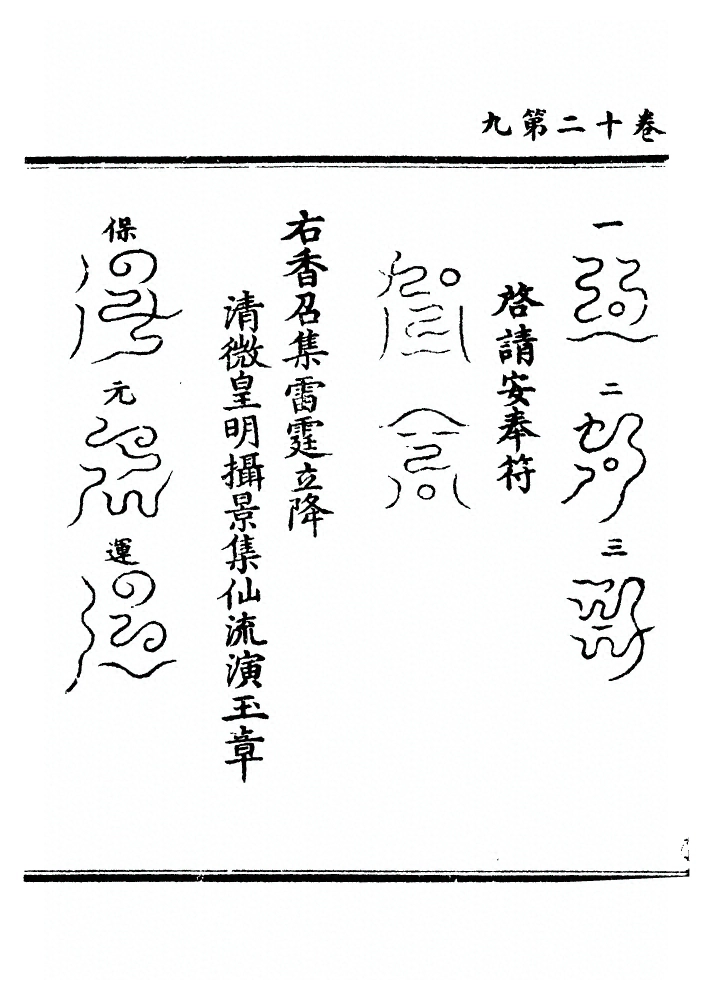 卷十二第九
一
二
三
啓請安奉符
右香召集雷霆立降
清微皇明攝景集仙流演玉章
保
元
運